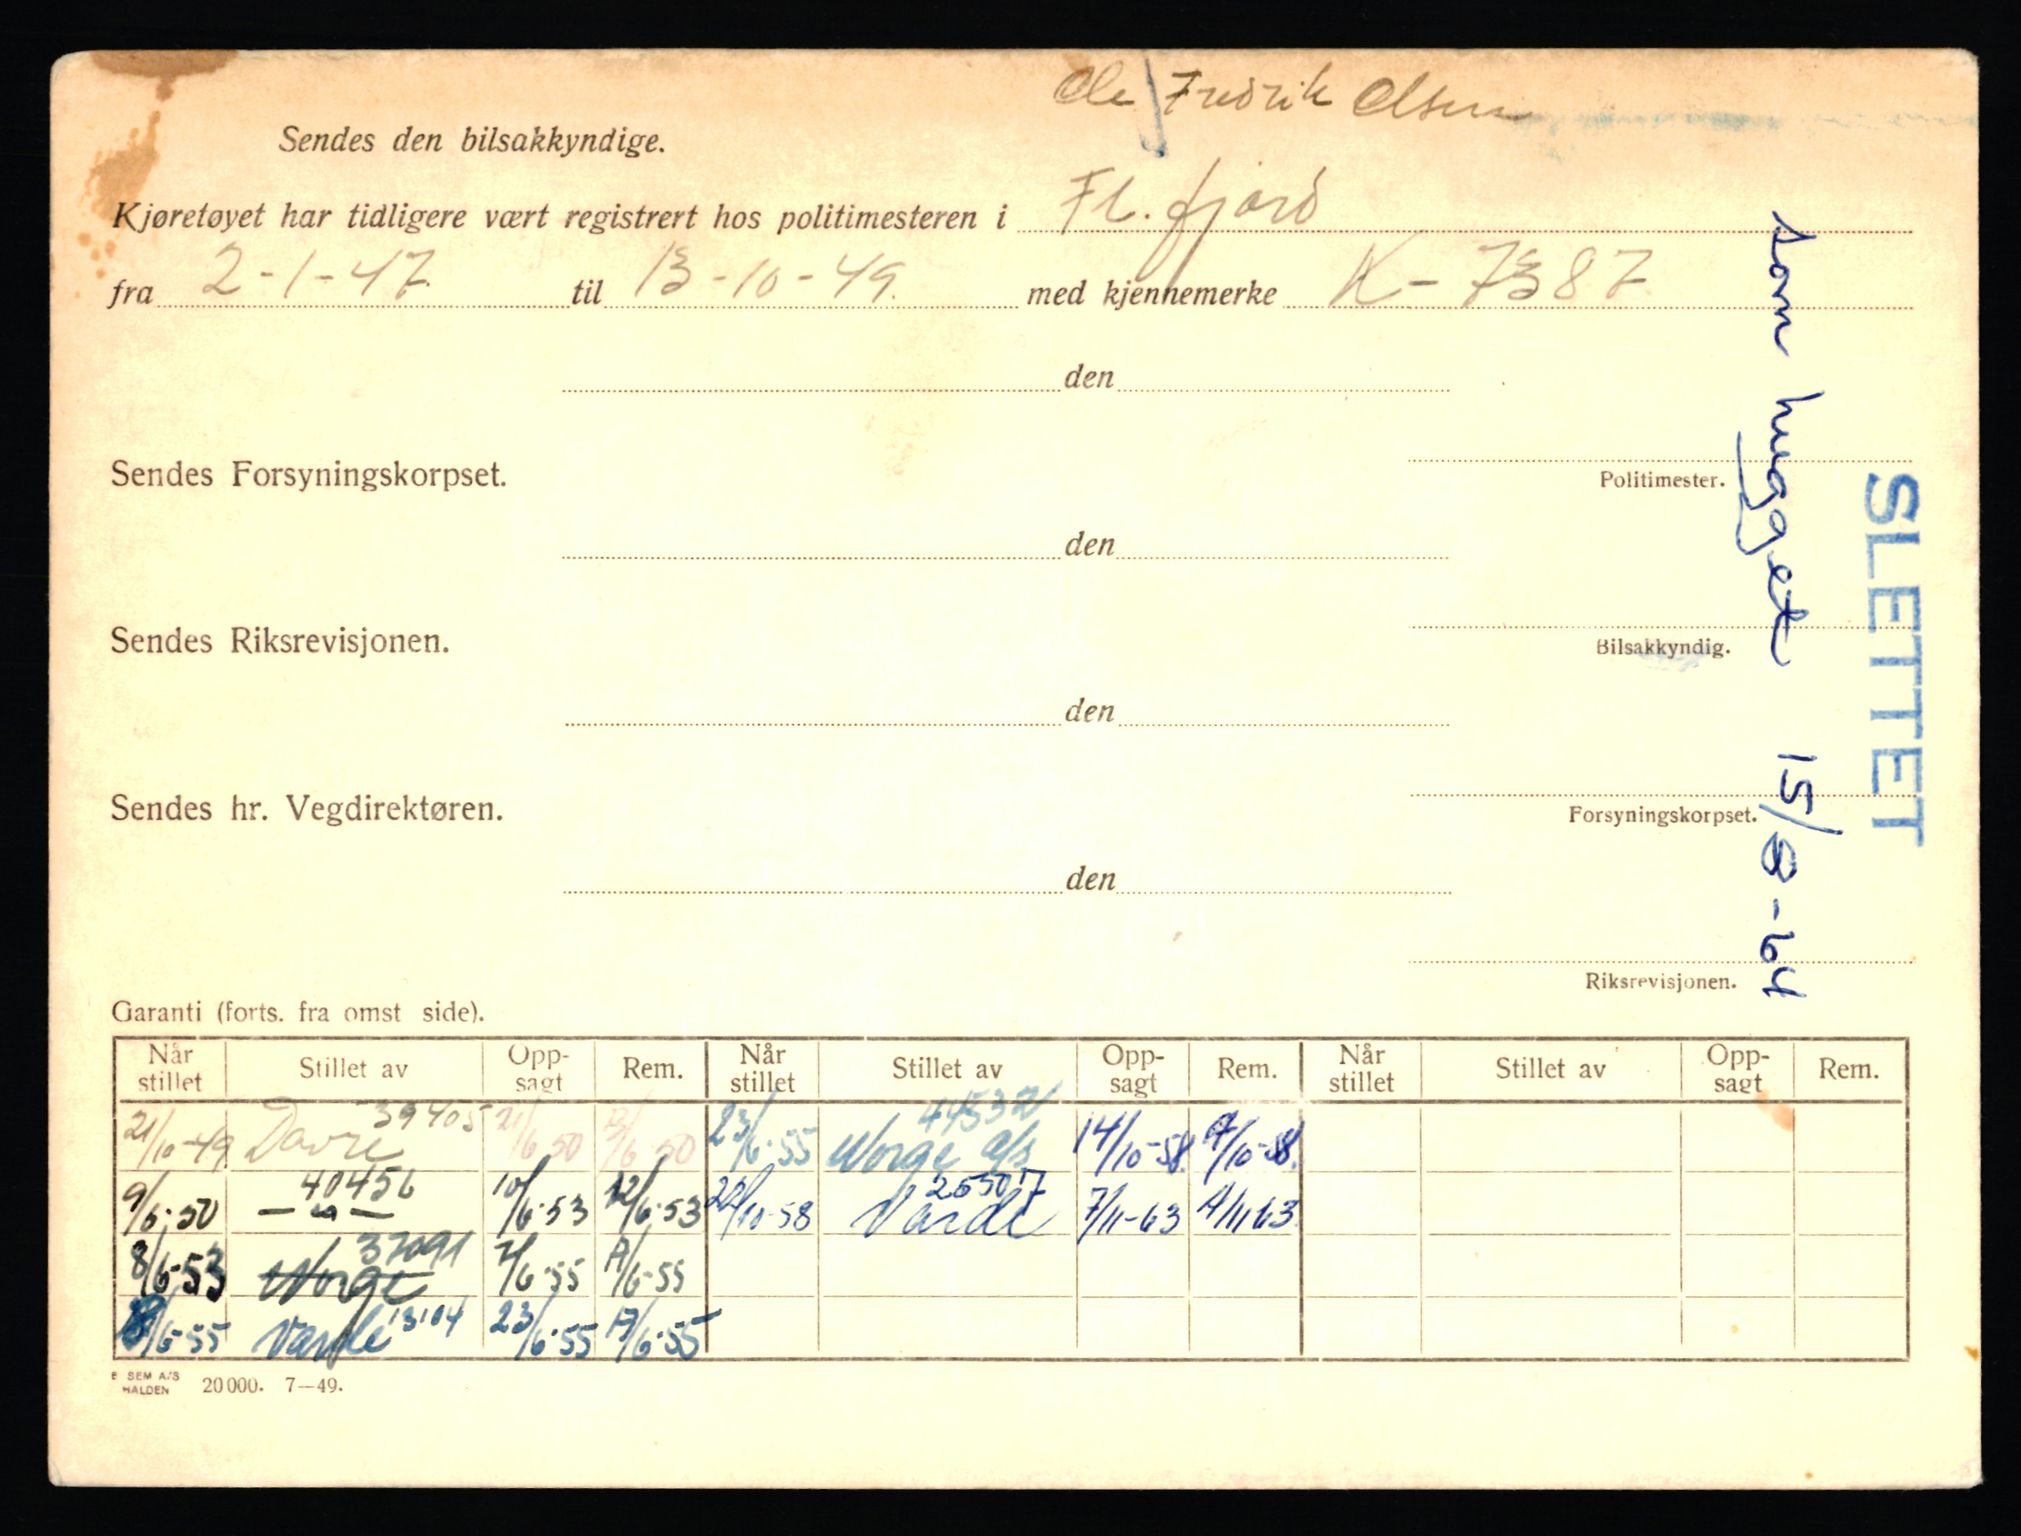 Ole Fredrik Olsen
Sendes den bilsakkyndige.
Kjøretøyet har tidligere vært registrert hos politimesteren i Fl. fjord
fra 2-1-47. til 13-10-49. med kjennemerke K - 7387
den
Sendes Forsyningskorpset.
Politimester.
den
Sendes Riksrevisjonen.
Bilsakkyndig.
den
Sendes hr. Vegdirektøren.
Forsyningskorpset.
den
Riksrevisjonen.
som hugget 15/8-64
SLETTET
Garanti (forts. fra omst side).
Når stillet Stillet av Opp-sagt Rem. Når stillet Stillet av Opp-sagt Rem. Når stillet Stillet av Opp-sagt Rem.
21/10-49 Davre 39405 21/6 50 /6-50 23/6-55 Norge a/s 44532 14/10-58 /10-58.
9/6-50 — " — 40456 10/6-53 12/6-53 /10-58 Varde 265017 7/11-63 A/11 63
8/6-53 Norge 37091 7/6-55 A/6-55
8/6-55 Varde 13104 23/6-55 A/6-55
E SEM A/S HALDEN 20 000. 7—49.